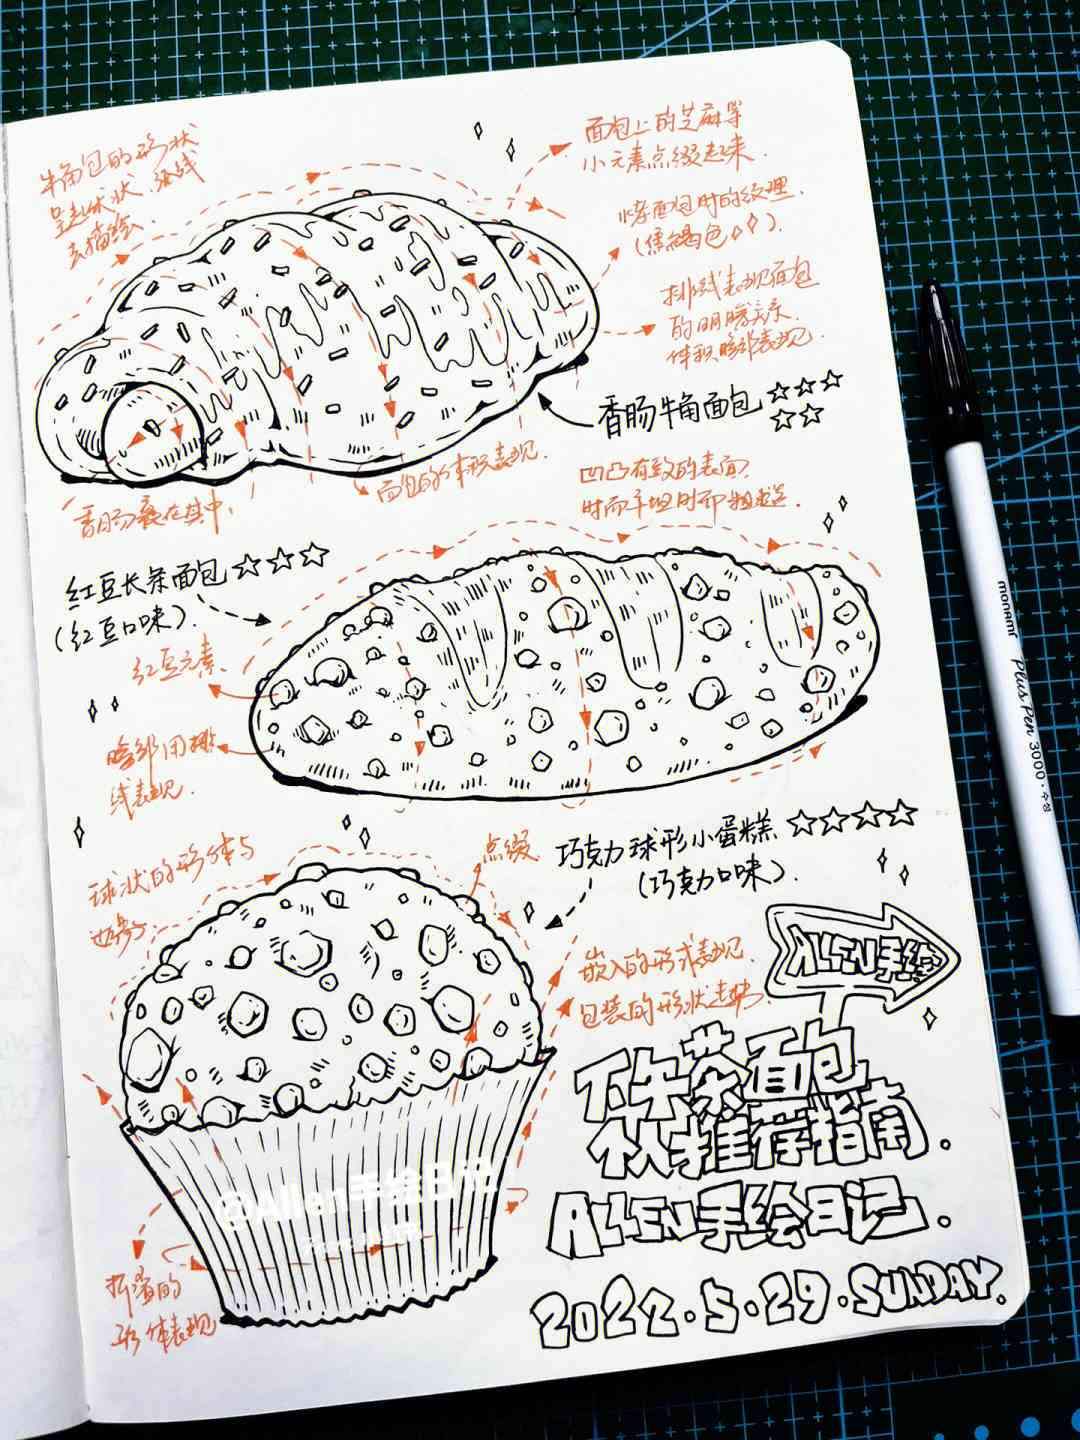 牛角包的形状
呈起伏状.弧线
去描绘.
面包上的芝麻等
小元素点缀起来.
烤面包时的纹理.
(焦褐色).
排线表现面包
的明暗关系.
体积暗部表现.
香肠牛角面包
香肠藏在其中.
面包的体形表现.
凹凸有致的表面.
时而平坦时而粗糙.
红豆长条面包
(红豆口味).
红豆元素.
暗部用排
线表现.
巧克力球形小蛋糕
(巧克力口味).
球状的形体与
点缀
嵌入的形式表现.
包装的形状走势.
ALLEN手绘
下午茶面包
推荐指南.
ALLEN手绘日记.
2022.5.29.SUNDAY.
@Allen手绘日记
折叠的
形体表现
monami Plus Pen 3000